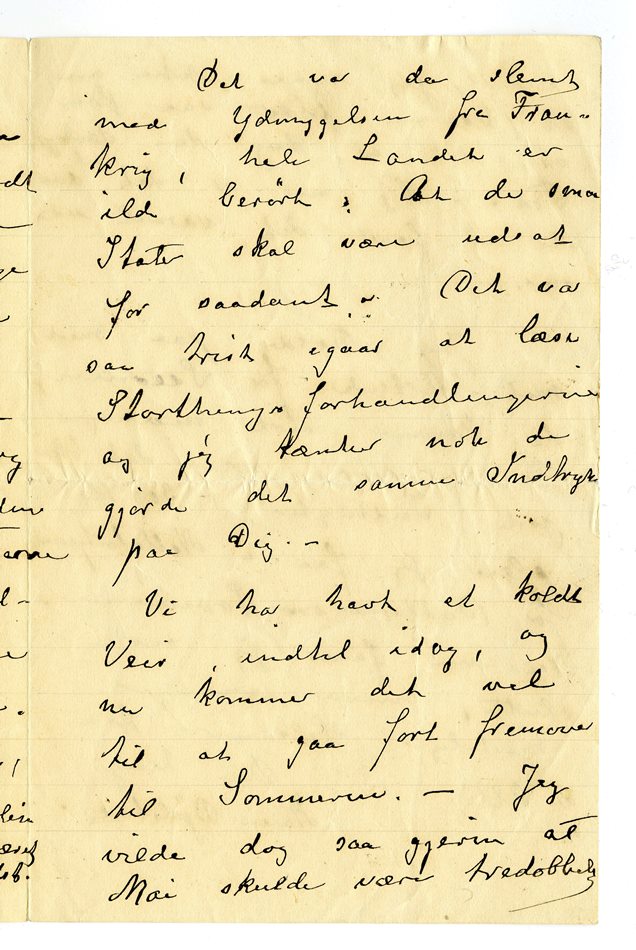 Det var da slemt
med Ydmygelsen fra Fran-
krig, hele Landet er
ilde berørt; At de smaa
Stater skal være udsat
for saadant. Det var
saa trist igaar at læse
Storthings forhandlingerne
og jeg tænker nok de
gjorde det samme Indtryk
paa Dig. —
Vi har havt et koldt
Veir, indtil idag, og
nu kommer det vel
til at gaa fort fremover
til Sommeren. — Jeg
vilde dog saa gjerne at
Mai skulde være tredobbelt